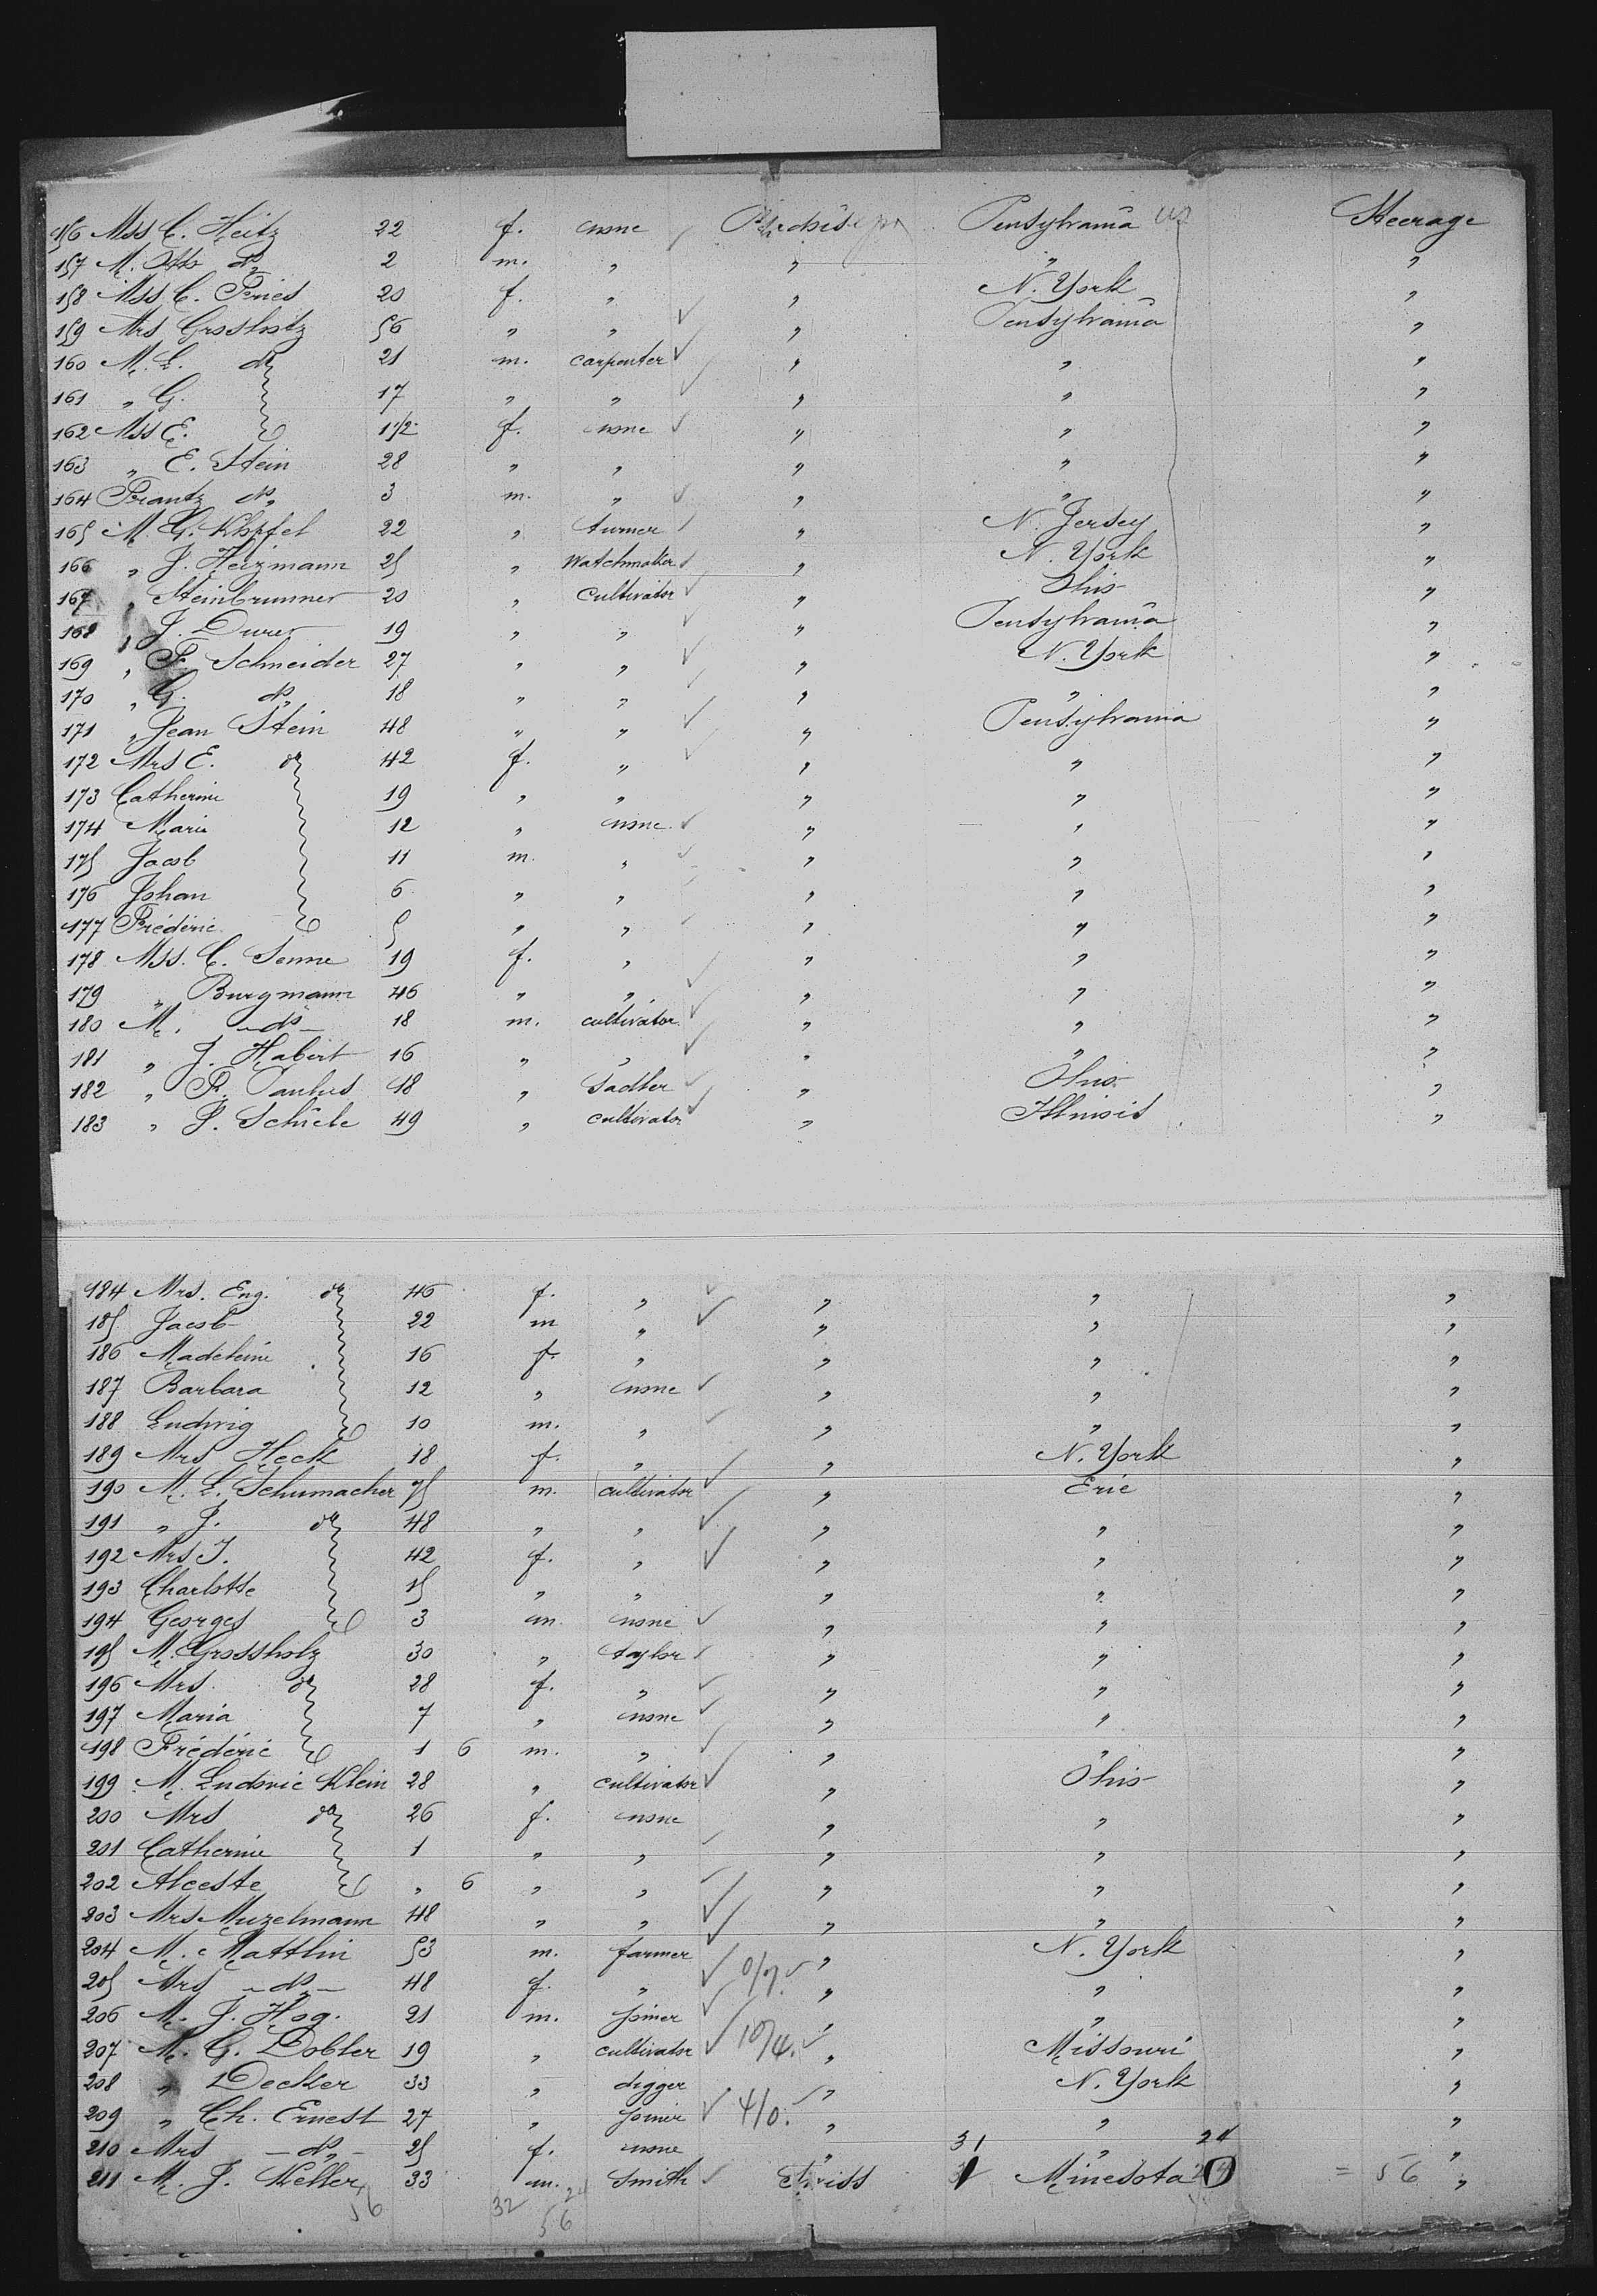 156 Mss C. Heitz 22 f. none Pensylvania Steerage
157 M. Otto do 2 m. " " " "
158 Mss C. Pries 20 f. " " N. York "
159 Mrs Grossholtz 56 " " " Pensylvania "
160 M. L. do 21 m. carpenter " " "
161 " G. 17 " " " " "
162 Mss E. 1 1/2 f. none " " "
163 " E. Stein 28 " " " " "
164 Frantz do 3 m. " " " "
165 M. G. Khpfel 22 " turner " N. Jersey "
166 " J. Heizmann 25 " Watchmaker " N. York "
167 " Steinbrunner 20 " Cultivator " Ohio "
168 " J. Durer 19 " " " Pensylvania "
169 " F. Schneider 27 " " " N. York "
170 " G. do 18 " " " " "
171 " Jean Stein 48 " " " Pensylvania "
172 Mrs E. do 42 f. " " " "
173 Catherine 19 " " " " "
174 Marie 12 " none " " "
175 Jacob 11 m. " " " "
176 Johan 6 " " " " "
177 Frédéric 5 " " " " "
178 Mss. C. Senne 19 f. " " " "
179 " Burgmann 46 " " " " "
180 M. do 18 m. cultivator " " "
181 " J. Habert 16 " " " " "
182 " P. Paulus 18 " Sadler " Ohio "
183 " J. Schiele 49 " cultivator " Illinois "
184 Mrs. Eng. do 46 f. " " " "
185 Jacob 22 m " " " "
186 Madeleine 16 f. " " " "
187 Barbara 12 " none " " "
188 Ludwig 10 m. " " " "
189 Mrs Heck 18 f. " " N. York "
190 M. L. Schumacher 75 m. cultivator " Erie "
191 " J. do 48 " " " " "
192 Mrs J. 42 f. " " " "
193 Charlotte 15 " " " " "
194 Georges 3 m. none " " "
195 M. Grossholz 30 " taylor " " "
196 Mrs. do 28 f. " " " "
197 Maria 7 " none " " "
198 Frédéric 1 6 m. " " " "
199 M. Ludovic Klein 28 " cultivator " Ohio "
200 Mrs do 26 f. none " " "
201 Catherine 1 " " " " "
202 Alceste " 6 " " " " "
203 Mrs Muzelmann 48 " " " " "
204 M. Matthin 53 m. farmer " N. York "
205 Mrs do 48 f. " 0/7. " " "
206 M. J. Hog. 21 m. joiner " " "
207 M. G. Dobler 19 " cultivator 10/4. " Missouri "
208 " Decker 33 " digger " N. York "
209 " Ch. Ernest 27 " joiner 4/0. " " "
210 Mrs do 25 f. none " 31 " 24 "
211 M. J. Keller 33 m. Smith Swiss Minesota = 56 "
56 32 24
56